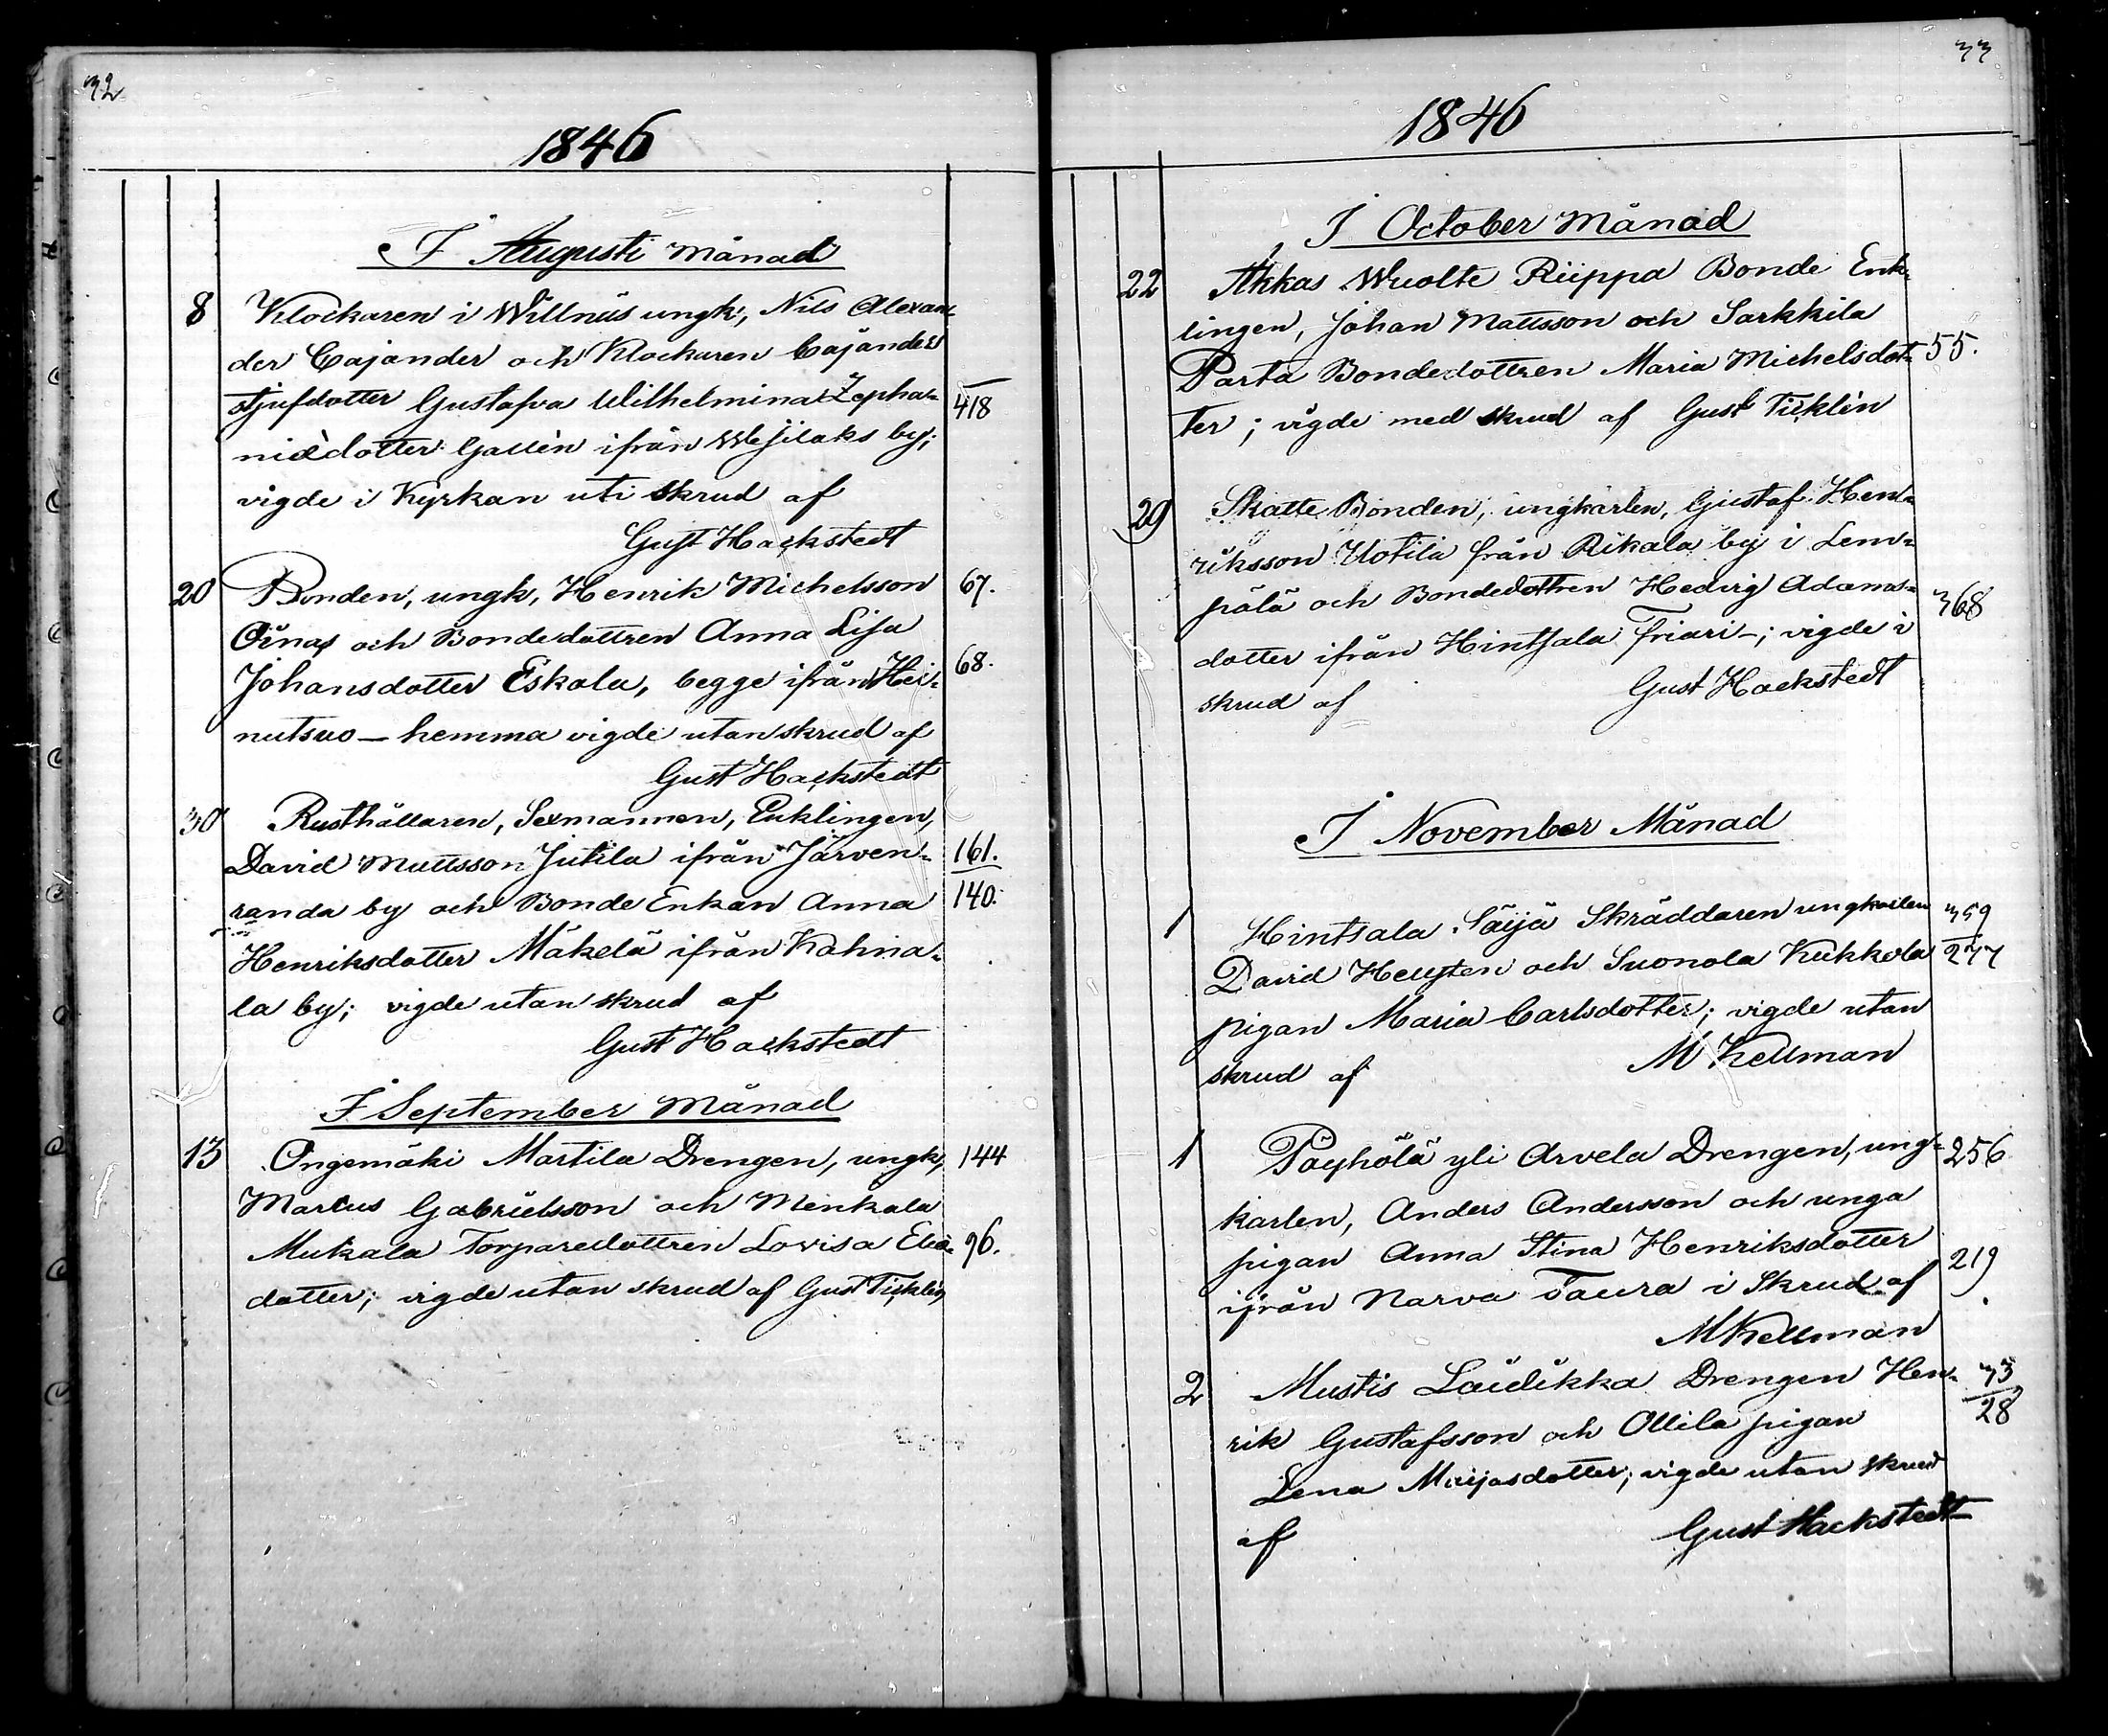 32
1846
I Augusti Månad
8 Klockaren i Willnäs ungk, Nils Alexan-
der Cajander och Klockaren Cajanders
stjufdotter Gustafva Wilhelmina Zepha- 418
niædotter Gallèn ifrån Wesilaks by;
vigde i Kyrkan uti skrud af
Gust Hackstedt
20 Bonden, ungk, Henrik Michelsson 67.
Oinas och Bondedottren Anna Lisa
Johansdotter Eskola, begge ifrån Hei- 68.
nutsuo - hemma vigde utan skrud af
Gust Hackstedt
30 Rusthållaren, Sexmannen, Enklingen,
David Mattsson Jutila ifrån Järven- 161.
randa by och Bonde Enkan Anna 140.
Henriksdotter Mäkelä ifrån Kahina-
la by; vigde utan skrud af
Gust Hackstedt
I September Månad
13 Ongemäki Martila Drengen, ungk, 144
Marcus Gabrielsson och Menkala
Mukala Torparedottren Lovisa Eliæ- 96.
dotter; vigde utan skrud af Gust Ticklén
33
1846
I October Månad
22 Akkas Wuolte Riippa Bonde Enk-
lingen, Johan Mattsson och Sarkkila
Parta Bondedottren Maria Michelsdot- 55.
ter; vigde med skrud af Gust Ticklén
29 Skatte Bonden, ungkarlen, Gustaf Hen-
riksson Uotila från Rikala by i Lem-
pälä och Bondedottren Hedvig Adams- 368
dotter ifrån Hintsala Friari -; vigde i
skrud af Gust Hackstedt
I November Månad
1 Hintsala Säijä Skräddaren ungkarlen 359
David Hellsten och Suonola Kukkola 277
pigan Maria Carlsdotter; vigde utan
skrud af M Kellman
1 Päyhölä yli Arvela Drengen, ung- 256
karlen, Anders Andersson och unga
pigan Anna Stina Henriksdotter
ifrån Narva Taura i Skrud af 219
M Kellman
2 Mustis Laidikka Drengen Hen- 33
rik Gustafsson och Ollila pigan 28
Lena Maijasdotter; vigde utan skrud
af Gust Hackstedt